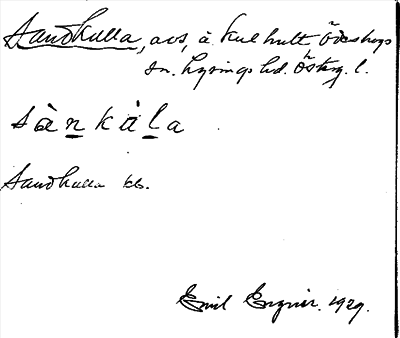 Sandkulla, avs, å Kulhult Ödeshögs
sn. Lysings hd. Österg. l.
sànkàla
Sandkulla kb.
Emil Enquier. 1929.